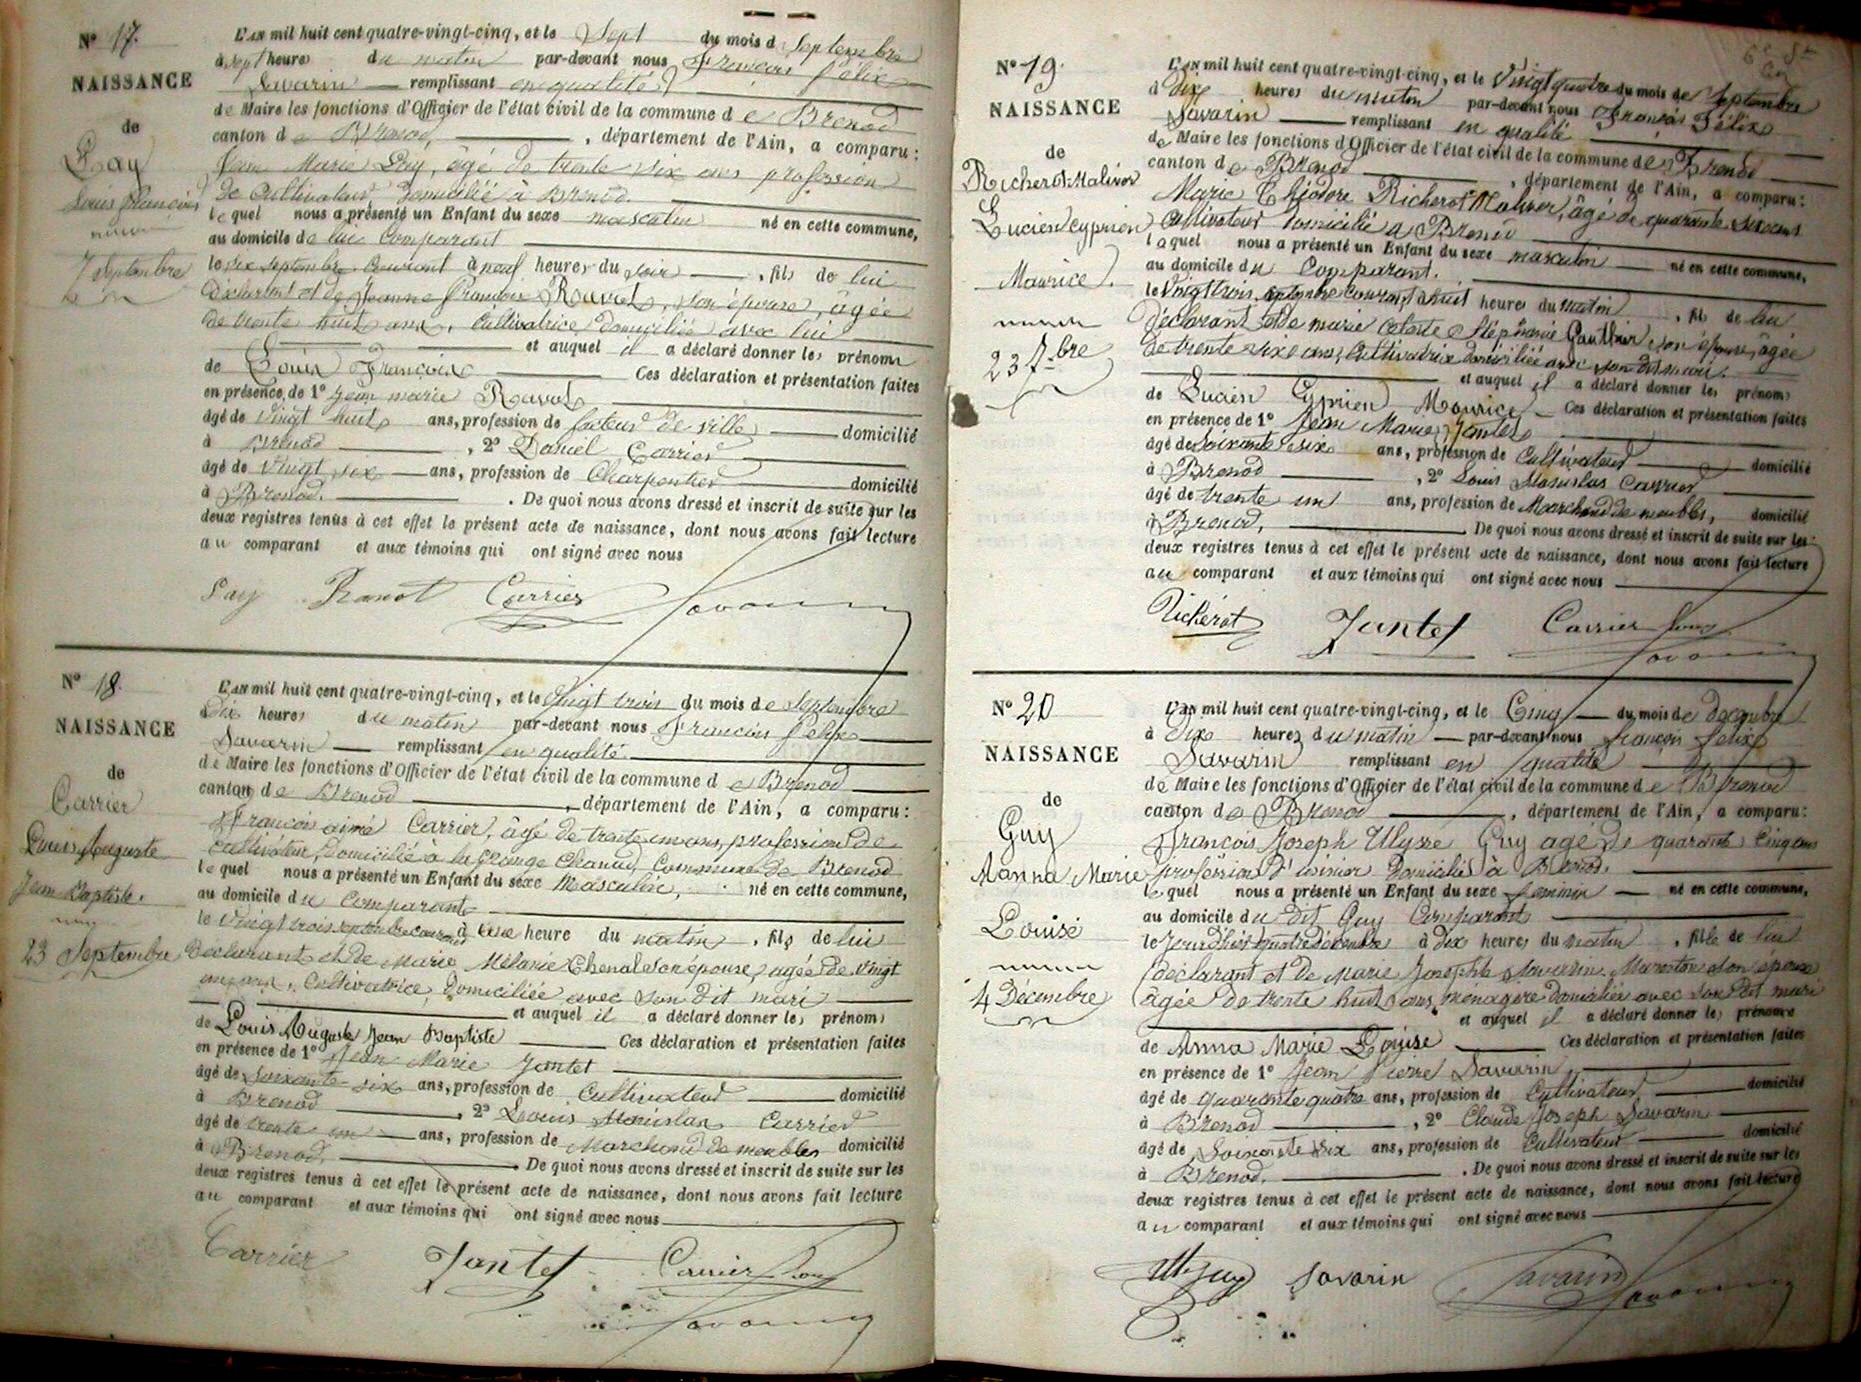 N° 17.
NAISSANCE
de
Louis François
7 Septembre
L'an mil huit cent quatre-vingt-cinq, et le Sept du mois de Septembre
à sept heures du matin par-devant nous François Félix
Savarin remplissant en qualité
de Maire les fonctions d'Officier de l'état civil de la commune de Brenod
canton de Brenod, département de l'Ain, a comparu:
Jean Marie Guy, âgé de trente six ans profession
de Cultivateur domicilié à Brenod
lequel nous a présenté un Enfant du sexe masculin né en cette commune,
au domicile de lui comparant
le six septembre courant à neuf heures du soir, fils de lui
déclarant et de Jeanne Françoise Ravot, son épouse, âgée
de trente huit ans, cultivatrice domiciliée avec lui
et auquel il a déclaré donner les prénoms
de Louis François Ces déclaration et présentation faites
en présence de 1° Jean marie Ravot
âgé de vingt huit ans, profession de facteur de ville domicilié
à Brenod, 2° Daniel Carrier
âgé de vingt six ans, profession de Charpentier domicilié
à Brenod. De quoi nous avons dressé et inscrit de suite sur les
deux registres tenus à cet effet le présent acte de naissance, dont nous avons fait lecture
au comparant et aux témoins qui ont signé avec nous
Ravot Carrier Savarin
N° 18.
NAISSANCE
de
Carrier
Louis Auguste
Jean Baptiste.
23 Septembre
L'an mil huit cent quatre-vingt-cinq, et le vingt trois du mois de Septembre
à dix heures du matin par-devant nous François Félix
Savarin remplissant en qualité
de Maire les fonctions d'Officier de l'état civil de la commune de Brenod
canton de Brenod, département de l'Ain, a comparu:
François aimé Carrier, âgé de trente un ans, profession de
cultivateur, domicilié à la Grange Chanay, Commune de Brenod
lequel nous a présenté un Enfant du sexe Masculin, né en cette commune,
au domicile du Comparant
le vingt trois septembre courant à une heure du matin, fils de lui
Déclarant et de Marie Mélanie Chenal son épouse, agée de vingt
ans, Cultivatrice, domiciliée avec son dit mari
et auquel il a déclaré donner les prénoms
de Louis Auguste Jean Baptiste Ces déclaration et présentation faites
en présence de 1° Jean Marie Jantet
âgé de soixante six ans, profession de Cultivateur domicilié
à Brenod, 2° Louis Stanislas Carrier
âgé de trente un ans, profession de Marchand de meubles domicilié
à Brenod. De quoi nous avons dressé et inscrit de suite sur les
deux registres tenus à cet effet le présent acte de naissance, dont nous avons fait lecture
au comparant et aux témoins qui ont signé avec nous
Carrier Jantet Carrier Louis
Savarin
N° 19.
NAISSANCE
de
Richerot-Malivor
Lucien Cyprien
Maurice.
23 7bre
L'an mil huit cent quatre-vingt-cinq, et le Vingt quatre du mois de Septembre
à dix heures du matin par-devant nous François Félix
Savarin remplissant en qualité
de Maire les fonctions d'Officier de l'état civil de la commune de Brenod
canton de Brenod, département de l'Ain, a comparu:
Marie Théodore Richerot Malivor, âgé de quarante six ans
Cultivateur domicilié à Brenod
lequel nous a présenté un Enfant du sexe masculin né en cette commune,
au domicile du Comparant.
le Vingt trois septembre courant à huit heures du matin, fils de lui
déclarant et de marie Stéphanie Gauthier son épouse, âgée
de trente six ans, Cultivatrice domiciliée avec son dit mari.
et auquel il a déclaré donner les prénoms
de Lucien Cyprien Maurice Ces déclaration et présentation faites
en présence de 1° Jean Marie Jantet
âgé de soixante six ans, profession de Cultivateur domicilié
à Brenod, 2° Louis Stanislas Carrier
âgé de trente un ans, profession de Marchand de meubles, domicilié
à Brenod, De quoi nous avons dressé et inscrit de suite sur les
deux registres tenus à cet effet le présent acte de naissance, dont nous avons fait lecture
au comparant et aux témoins qui ont signé avec nous
Richerot Jantet Carrier Louis
Savarin
N° 20
NAISSANCE
de
Guy
Anna Marie
Louise
4 Décembre
L'an mil huit cent quatre-vingt-cinq, et le Cinq du mois de décembre
à Dix heures du matin par-devant nous François Félix
Savarin remplissant en qualité
de Maire les fonctions d'Officier de l'état civil de la commune de Brenod
canton de Brenod, département de l'Ain, a comparu:
François Joseph Ulysse Guy agé de quarante Cinq ans
profession d' Domicilié à Brenod.
lequel nous a présenté un Enfant du sexe féminin né en cette commune,
au domicile du dit Guy Comparant
le quatre décembre à dix heures du matin, fille de lui
déclarant et de Marie Josephte Savarin son épouse
âgée de trente huit ans, ménagère domiciliée avec son dit mari
et auquel il a déclaré donner les prénoms
de Anna Marie Louise Ces déclaration et présentation faites
en présence de 1° Jean Pierre Savarin
âgé de quarante quatre ans, profession de Cultivateur domicilié
à Brenod, 2° Claude Joseph Savarin
âgé de Soixante six ans, profession de Cultivateur domicilié
à Brenod. De quoi nous avons dressé et inscrit de suite sur les
deux registres tenus à cet effet le présent acte de naissance, dont nous avons fait lecture
au comparant et aux témoins qui ont signé avec nous
Guy Savarin Savarin
Savarin